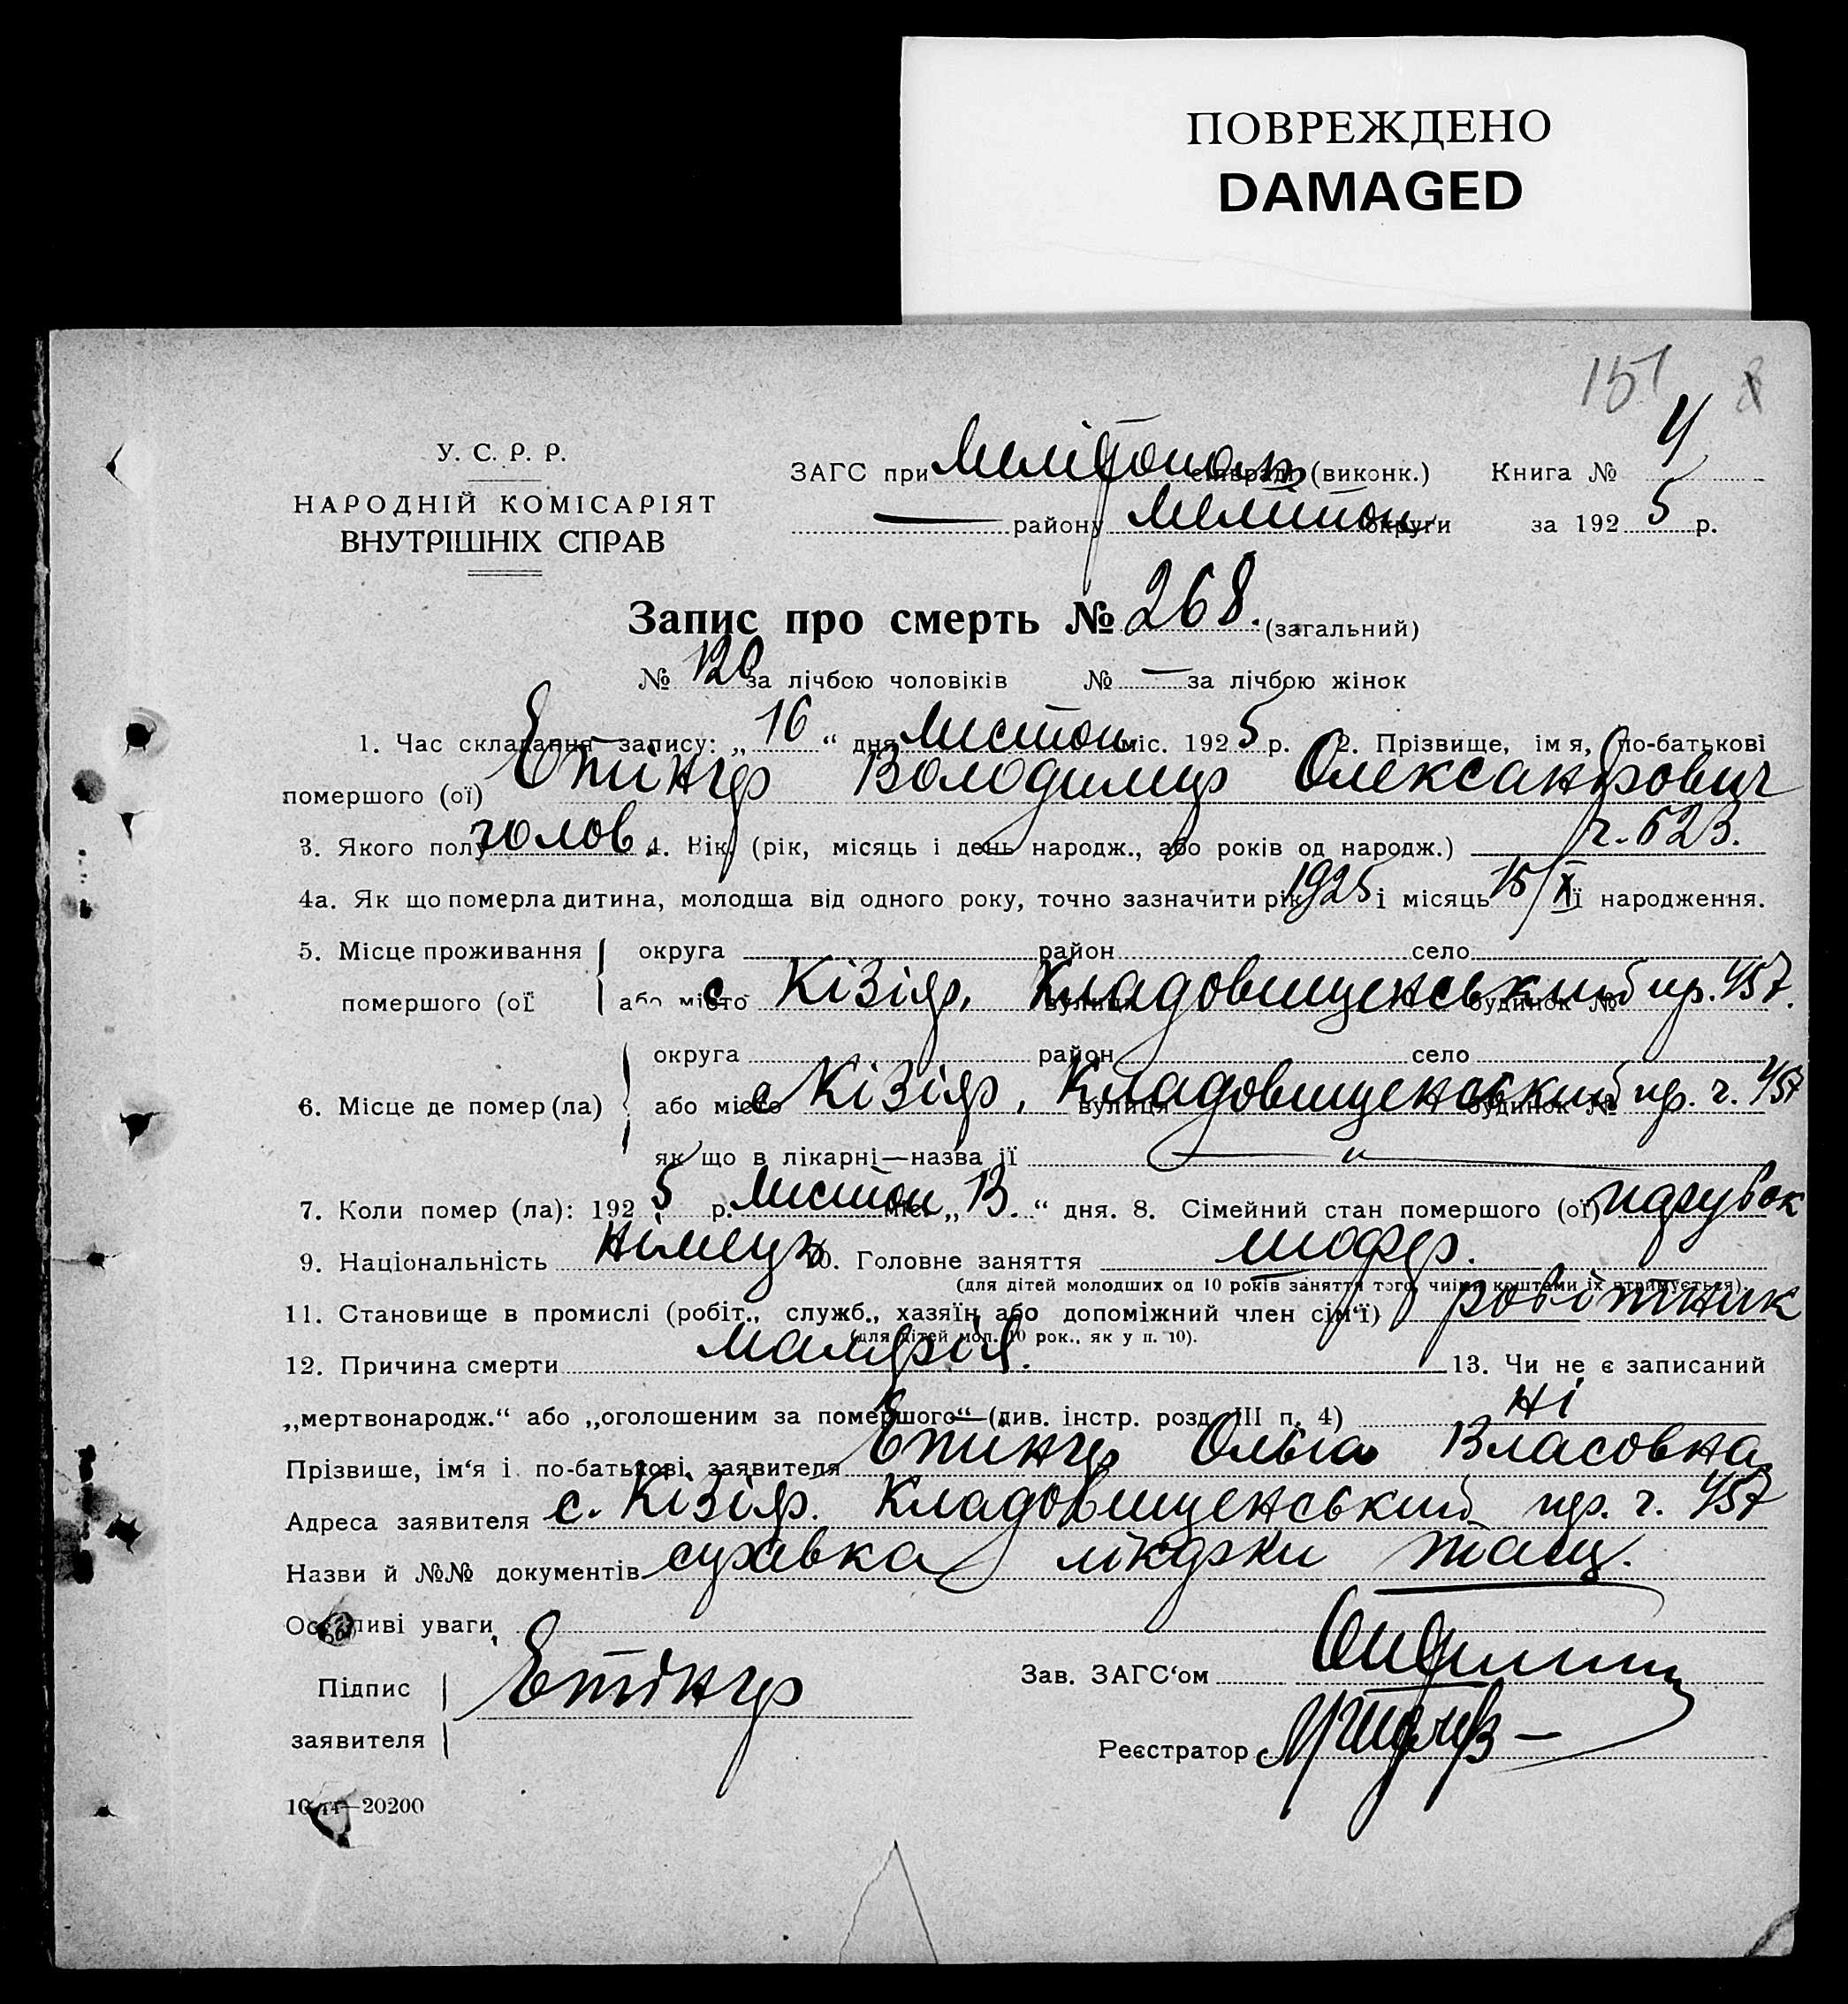 ПОВРЕЖДЕНО
DAMAGED
151
У. С. Р. Р.
НАРОДНІЙ КОМІСАРІЯТ
ВНУТРІШНІХ СПРАВ
ЗАГС при Меліто (виконк.) Книга № 4
— району Мелітоп округи за 192 5 р.
Запис про смерть № 268. (загальний)
№ 120 за лічбою чоловіків № — за лічбою жінок
1. Час складання запису: „ 16 “ дня Листоп міс. 192 5 р. 2. Прізвище, ім я, по-батькові
помершого (ої) Етінгер Володимир Олександрович
3. Якого полу чолов. 4. Вік (рік, місяць і день народж., або років од народж.)
4а. Як що померла дитина, молодша від одного року, точно зазначити рік 1925 і місяць 15/X її народження.
5. Місце проживання округа район село
помершого (ої або місто с Кізіяр, вулиця Кладовищенський будинок № пр. 457.
6. Місце де помер (ла) округа район село
або місто с Кізіяр, вулиця Кладовищенський будинок № пр. ч. 457
як що в лікарні—назва її — " —
7. Коли помер (ла): 192 5 р. Листоп міс. „ 13. “ дня. 8. Сімейний стан помершого (ої) парубок
9. Національність німець 10. Головне заняття шофер.
(для дітей молодших од 10 років заняття того, чиїми коштами їх втримується).
11. Становище в промислі (робіт., служб., хазяїн або допоміжний член сім‘ї) робітник
(для дітей мол. 10 рок., як у п. 10).
12. Причина смерти малярія. 13. Чи не є записаний
„мертвонародж.“ або „оголошеним за помершого“ (див. інстр. розд. III п. 4) Ні
Прізвише, ім‘я і по-батькові заявителя Етінгер Ольга Власовна
Адреса заявителя с. Кізіяр. Кладовищенський пер. ч. 457
Назви й №№ документів справка лікарки
Особливі уваги
Підпис заявителя Етінгер
Зав. ЗАГС‘ом
Реєстратор
—20200